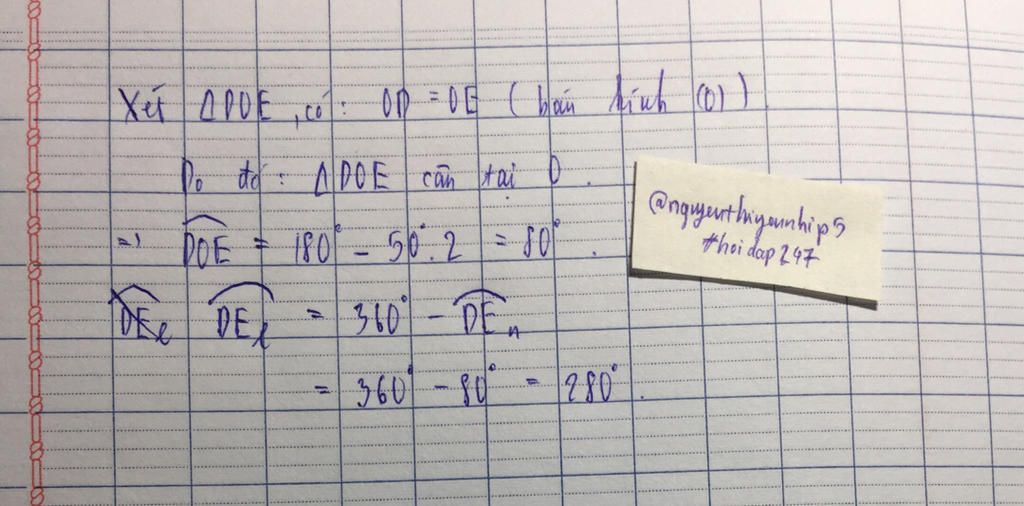 Xét ΔDOE, có: OD = OE (bán kính (O))
Do đó: ΔDOE cân tại O.
=> DOE = 180° - 50°.2 = 80°.
DEl DEl = 360° - DEn
= 360° - 80° = 280°.
@nguyenthiyennhip5
#hoidap247